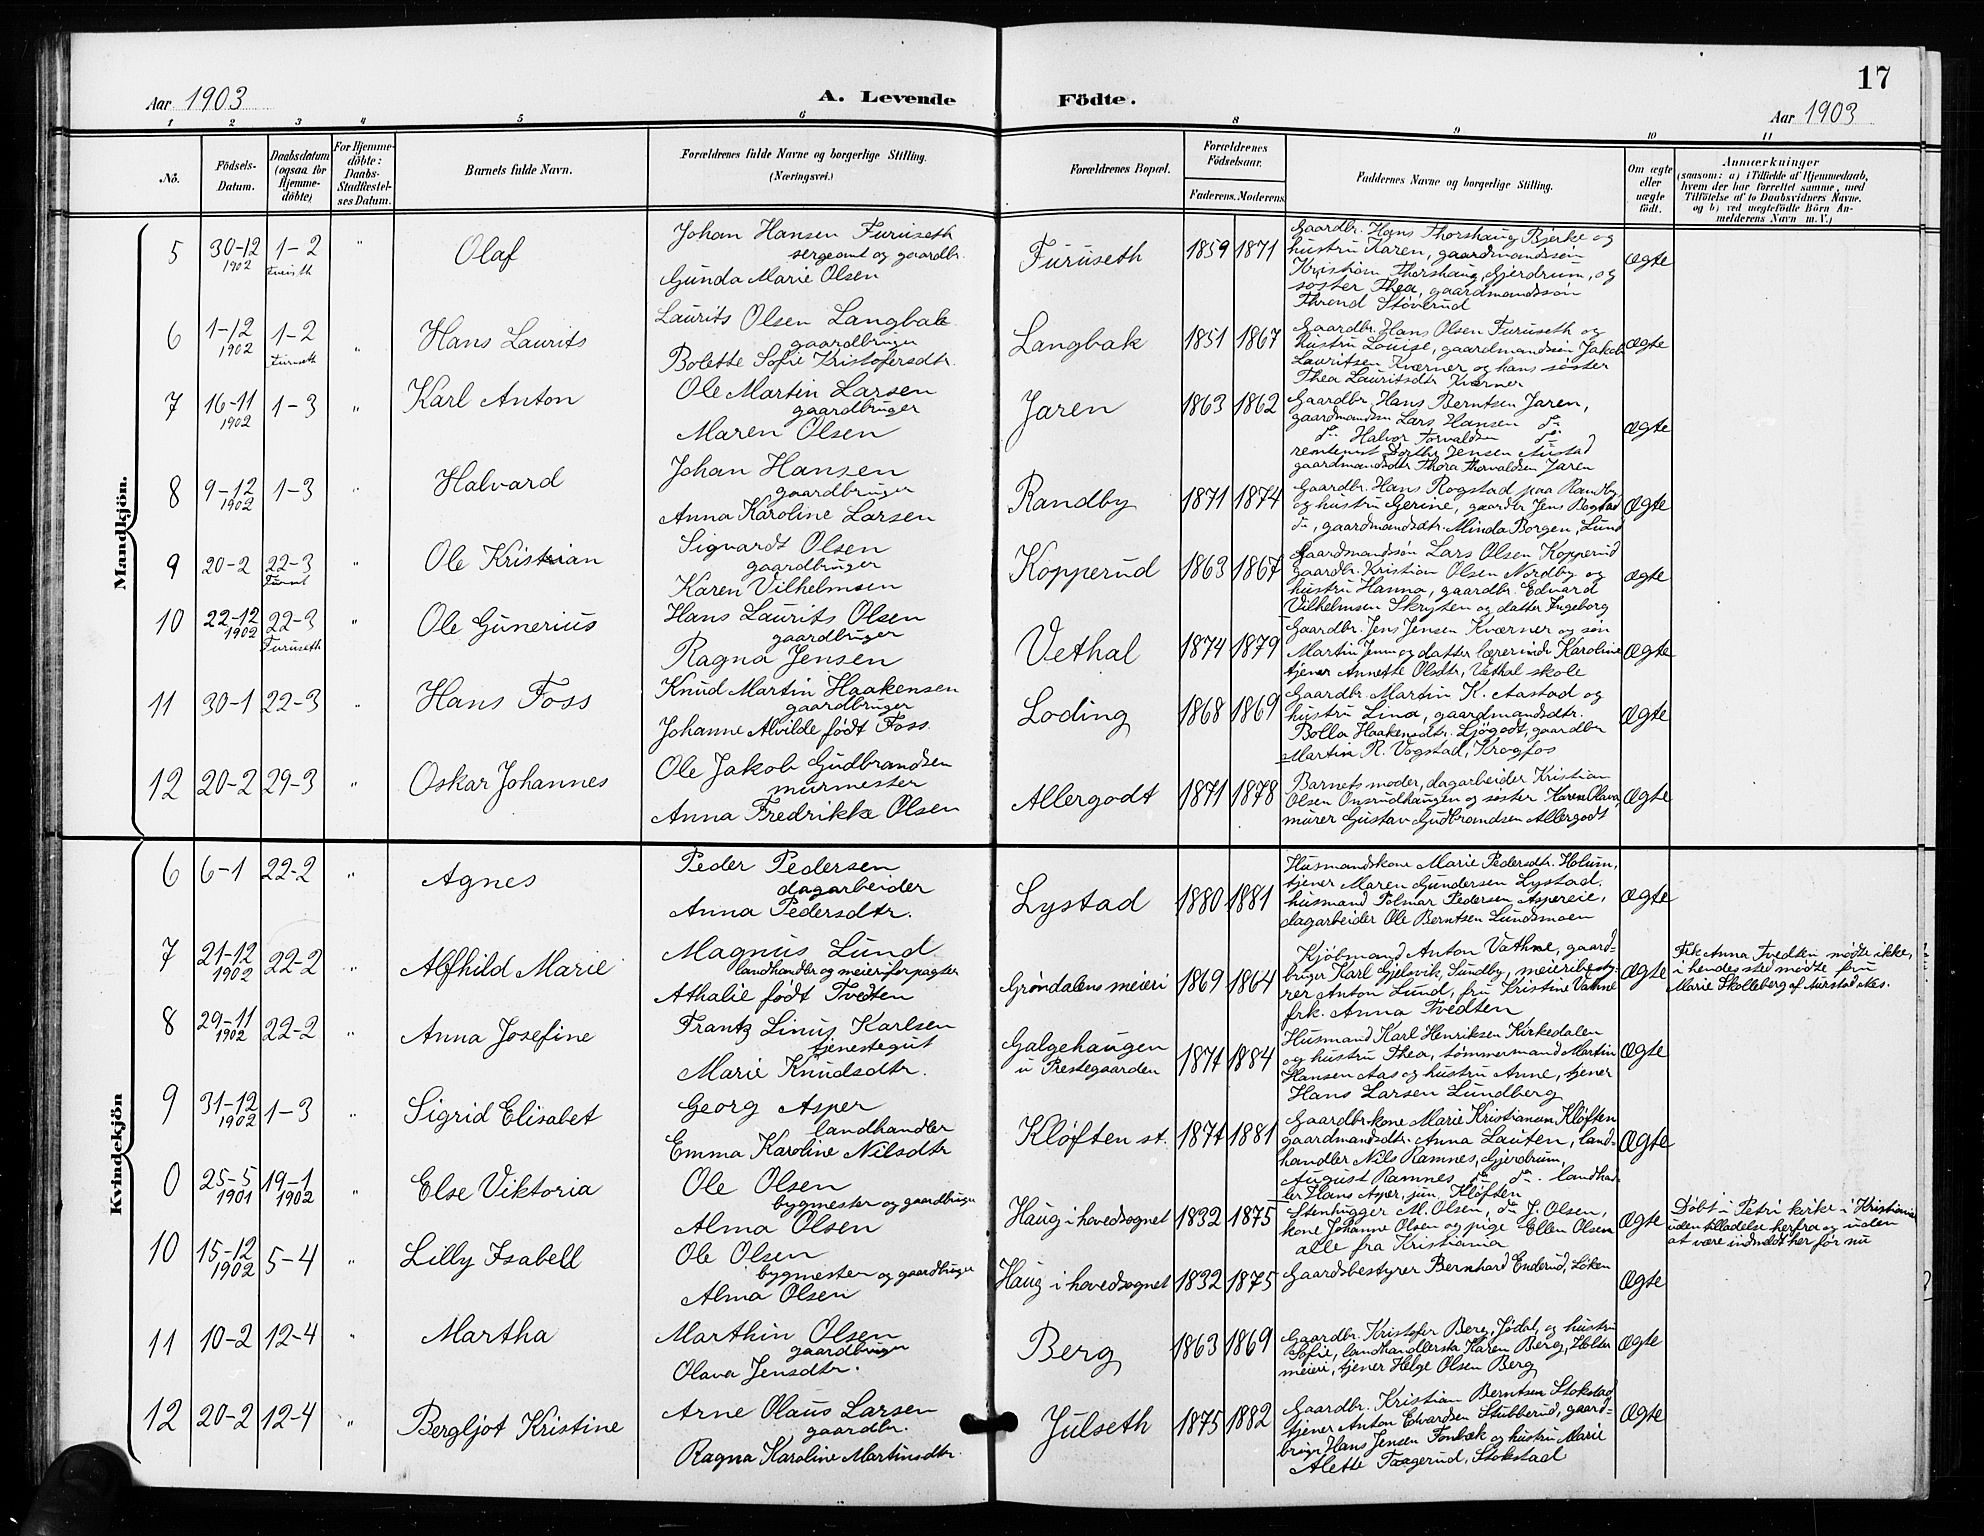 Aar 1903
A. Levende Födte.
17
Aar 1903
1 2 3 4 5 6 8 9 10 11
No.
Födsels-Datum.
Daabsdatum (ogsaa for Hjemmedöbte)
For Hjemmedöbte: Daabs-Stadfæstelses Datum.
Barnets fulde Navn.
Forældrenes fulde Navne og borgerlige Stilling. (Næringsvei.)
Forældrenes Bopæl.
Forældrenes Födselsaar.
Faderens. Moderens.
Faddernes Navne og borgerlige Stilling.
Om ægte eller uægte födt.
Anmærkninger
(saasom: a) i Tilfælde af Hjemmedaab, hvem der har forrettet samme, med Tilföielse af to Daabsvidners Navne. og b) ved uægtefödte Börn Anmelderens Navn m. V.)
Mandkjön.
5 30-12 1902 1-2 " Olaf
Johan Hansen Furuseth
sergeant og gaardbr.
Gunda Marie Olsen
Furuseth 1859 1871
Gaardbr. Hans Thorshaug Bjerke og
hustru Karen, gaardmandssøn
Kristian Thorshaug, Gjerdrum, og
søster Thea, gaardmandssøn
Thrend Støverud
Ægte
6 1-12 1902 1-2 Furuseth " Hans Laurits
Laurits Olsen Langbak
gaardbruger
Bolette Sofie Kristofersdtr.
Langbak 1851 1867
Gaardbr. Hans Olsen Furuseth og
hustru Louise, gaardmandssøn Jakob
Lauritsen Kværner og hans søster
Thea Lauritsdtr Kværner
Ægte
7 16-11 1902 1-3 " Karl Anton
Ole Martin Larsen
gaardbruger
Maren Olsen
Jaren 1863 1862
Gaardbr. Hans Berntsen Jaren,
gaardmandssn Lars Hansen do
do Halvor Torvaldsen do
rentenist Dorthe Jensen Austad
gaardmandsdtr Thora Thorvaldsen Jaren
Ægte
8 9-12 1902 1-3 " Halvard
Johan Hansen
gaardbruger
Anna Karoline Larsen
Randby 1871 1874
Gaardbr. Hans Rogstad paa Randby
og hustru Gerine, gaardbr Jens Rogstad
do, gaardmandsdtr. Minda Borgen, Lund
Ægte
9 20-2 22-3 " Ole Kristian
Sigvardt Olsen
gaardbruger
Karen Vilhelmsen
Kopperud 1863 1867
Gaardmandssøn Lars Olsen Kopperud
gaardbr. Kristian Olsen Nordby og
hustru Hanna, gaardbr. Edvard
Vilhelmsen Skrysten og datter Ingeborg
Ægte
10 22-12 1902 22-3 Furuseth " Ole Gunerius
Hans Laurits Olsen
gaardbruger
Ragna Jensen
Vethal 1874 1879
Gaardbr. Jens Jensen Kværner og søn
Martin Jenni og datter lærerinde Karoline
tjener Annette Olsdtr, Vethal skole
Ægte
11 30-1 22-3 " Hans Foss
Knud Martin Haakensen
gaardbruger
Johanne Alvilde født Foss.
Loding 1868 1869
Gaardbr. Martin K. Aastad og
hustru Lina, gaardmandsdtr.
Bolla Haakensdtr. Ljøgodt, gaardbr
Martin R. Vogstad, Krogfos
Ægte
12 20-2 29-3 " Oskar Johannes
Ole Jakob Gudbrandsen
murmester
Anna Fredrikke Olsen
Allergodt 1871 1878
Barnets moder, dagarbeider Kristian
Olsen Onsrudhaugen og søster Karen Olava,
murer Gustav Gudbrandsen Allergodt
Ægte
Kvindekjön
6 6-1 22-2 " Agnes
Peder Pedersen
dagarbeider
Anna Pedersdtr.
Lystad 1880 1881
Husmandskone Marie Pedersdtr. Holum,
tjener Maren Gundersen Lystad,
husmand Polmar Pedersen Aspereie,
dagarbeider Ole Berntsen Lundsmoen
Ægte
7 21-12 1902 22-2 " Alfhild Marie
Magnus Lund
landhandler og meieriforpagter
Athalie født Tvedten
Grøndalens meieri 1869 1864
Kjøbmand Anton Vathne, gaard-
bruger Karl Gjelsvik, Sundby, meieribesty-
rer Anton Lund, fru Kristine Vathne
frk. Anna Tvedten
Ægte
Frk. Anna Tvedten mødte ikke,
i hendes sted mødte fru
Marie Skolleberg af Aurstad akes.
8 29-11 1902 22-2 " Anna Josefine
Frantz Linus Karlsen
tjenestegut
Marie Knudsdtr.
Galgehaugen
u Prestegaarden
1874 1884
Husmand Karl Henriksen Kirkedalen
og hustru Thea, tømmermand Martin
Hansen Aas og hustru Anne, tjener
Hans Larsen Lundberg
Ægte
9 31-12 1902 1-3 " Sigrid Elisabet
Georg Asper
landhandler
Emma Karoline Nilsdtr
Kløften st. 1874 1881
Gaardbr.kone Marie Kristiansen Kløften
gaardmandsdtr. Anna Lauten, land-
handler Nils Ramnes, Gjerdrum,
August Ramnes do do. landhand
ler Hans Asper, jun, Kløften
Ægte
0 25-5 1901 19-1 1902 " Else Viktoria
Ole Olsen
bygmester og gaardbruger
Alma Olsen
Haug i hovedsognet 1832 1875
Stenhugger M. Olsen, do J. Olsen,
kone Johanne Olsen og pige Ellen Olsen
alle fra Kristiania
Ægte
Døbt i Petri kirke i Kristiania
uden tilladelse herfra og uden
at være indmeldt her før nu
10 15-12 1902 5-4 " Lilly Isabell
Ole Olsen
bygmester og gaardbruger
Alma Olsen
Haug i hovedsognet 1832 1875
Gaardsbestyrer Bernhard Enderud, Løken
Ægte
11 10-2 12-4 " Martha
Marthin Olsen
gaardbruger
Olava Jensdtr.
Berg 1863 1869
Gaardbr. Kristofer Berg, Jødal, og hustru
Sofie, landhandlerska Karen Berg, Holter
meieri, tjener Helge Olsen Berg
Ægte
12 20-2 12-4 " Bergljot Kristine
Arne Olaus Larsen
gaardbr.
Ragna Karoline Martinsdtr.
Julseth 1875 1882
Gaardbr. Kristian Berntsen Stokstad
tjener Anton Edvardsen Stubberud, gaard-
bruger Hans Jensen Fonbæk og hustru Marie
Alette Taagerud, Stokstad
Ægte